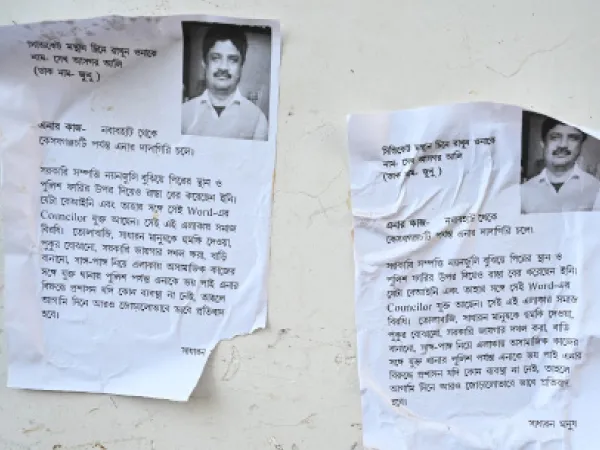 সিন্ডিকেট মস্তান চিনে রাখুন ওনাকে
নাম- সেখ আসগর আলি
(ডাক নাম- জুনু )
এনার কাজ- নবাবহাট থেকে
পর্যন্ত এনার দাদাগিরি চলে।
সরকারি সম্পত্তি নয়ানজুলি বুঝিয়ে পিরের স্থান ও
পুলিশ ফারির উপর দিয়েও রাস্তা বের করেছেন ইনি।
যেটা বেআইনি এবং তাহার সঙ্গে সেই Word-এর
Councilor যুক্ত আছেন। সেই এই এলাকার সমাজ
বিরধি। তোলাবাজি, সাধারন মানুষকে হুমকি দেওয়া,
পুকুর বোঝানো, সরকারি জায়গার দখল করা, বাড়ি
বানানো, সাঙ্গ-পাঙ্গ নিয়ে এলাকায় অসামাজিক কাজের
সঙ্গে যুক্ত থানার পুলিশ পর্যন্ত এনাকে ভয় পাই এনার
বিরুদ্ধে প্রশাসন যদি কোন ব্যবস্থা না নেই, তাহলে
আগামি দিনে আরও জোড়ালোভাবে ভাবে প্রতিবাদ
হবে।
সাধারন
সিন্ডিকেট মস্তান চিনে রাখুন ওনাকে
নাম- সেখ আসগর আলি
(ডাক নাম- জুনু )
এনার কাজ- নবাবহাট থেকে
পর্যন্ত এনার দাদাগিরি চলে।
সরকারি সম্পত্তি নয়ানজুলি বুঝিয়ে পিরের স্থান ও
পুলিশ ফারির উপর দিয়েও রাস্তা বের করেছেন ইনি।
যেটা বেআইনি এবং তাহার সঙ্গে সেই Word-এর
Councilor যুক্ত আছেন। সেই এই এলাকার সমাজ
বিরধি। তোলাবাজি, সাধারন মানুষকে হুমকি দেওয়া,
পুকুর বোঝানো, সরকারি জায়গার দখল করা, বাড়ি
বানানো, সাঙ্গ-পাঙ্গ নিয়ে এলাকায় অসামাজিক কাজের
সঙ্গে যুক্ত থানার পুলিশ পর্যন্ত এনাকে ভয় পাই এনার
বিরুদ্ধে প্রশাসন যদি কোন ব্যবস্থা না নেই, তাহলে
আগামি দিনে আরও জোড়ালোভাবে ভাবে প্রতিবাদ
হবে।
সাধারন মানুষ